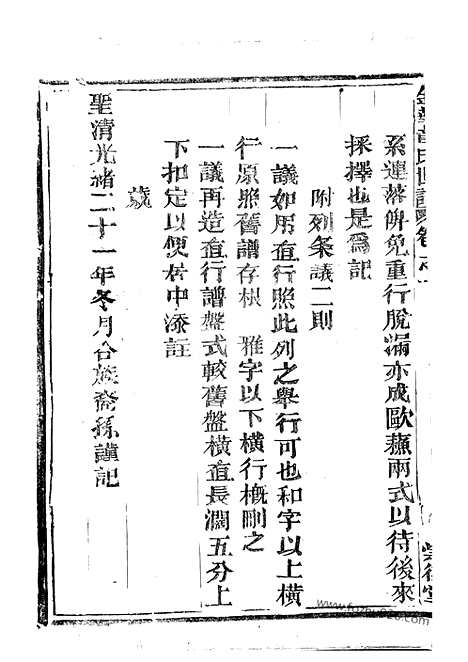 系連落俾免重行脫漏亦成歐蘇兩式以待後來
採擇也是為記
附列条議二則
一議如用直行照此列之舉行可也和字以上橫
行原照舊譜存根 雅字以下橫行概刪之
一議再造直行譜盤式較舊盤橫直長濶五分上
下扣定以便居中添註
歲
聖清光緒二十一年冬月合族裔孫謹記